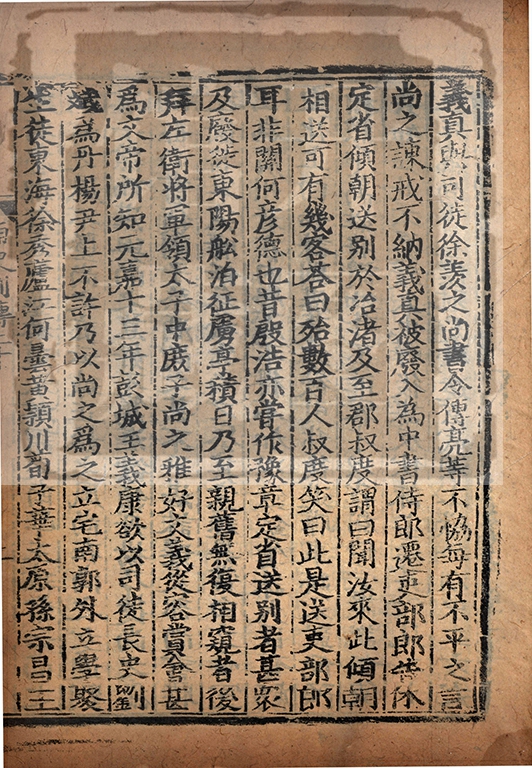 義真與司徒徐羨之尚書令傅亮等不恊每有不平之言
尚之諫戒不納義真被廢入為中書侍郎遷吏部郎告休
定省傾朝送别於冶渚及至郡叔度謂曰聞汝來此傾朝
相送可有幾客荅曰殆數百人叔度笑曰此是送吏部郎
耳非關何彦德也昔殷浩亦嘗作豫章定省送别者甚衆
及廢徙東陽舩泊征虜亭積日乃至親舊無復相窺者後
拜左衛將軍領太子中庶子尚之雅好文義從容賞會甚
爲文帝所知元嘉十三年彭城王義康欲以司徒長史劉
斌為丹楊尹上不許乃以尚之爲之立宅南郭外立學聚
生徒東海徐秀廬江何曇黃潁川荀子華太原孫宗昌王